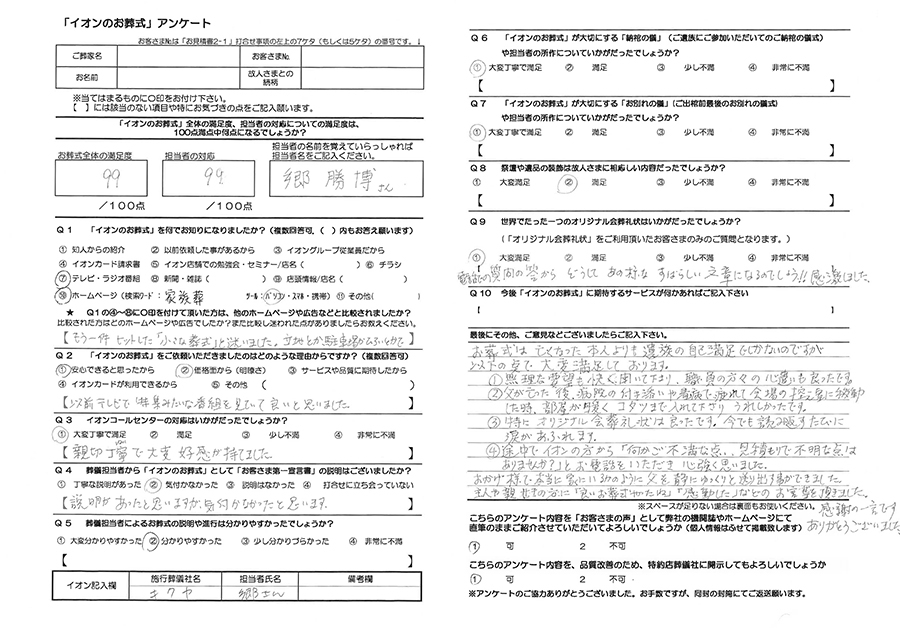 「イオンのお葬式」アンケート
お客さま№は「お見積書2-1」打合せ事項の左上の7ケタ（もしくは5ケタ）の番号です。↓
ご葬家名 お客さま№
お名前 故人さまとの続柄
※当てはまるものに○印をお付け下さい。
【　】には該当のない項目や特にお気づきの点をご記入願います。
「イオンのお葬式」全体の満足度、担当者の対応についての満足度は、
100点満点中何点になるでしょうか？
担当者の名前を覚えていらっしゃれば
お葬式全体の満足度 担当者の対応 担当者名をご記入ください。
99 99 郷 勝博さん
／100点 ／100点
Q1 「イオンのお葬式」を何でお知りになりましたか？（複数回答可。（　）内もお答え願います）
① 知人からの紹介 ② 以前依頼した事があるから ③ イオングループ従業員だから
④ イオンカード請求書 ⑤ イオン店舗での勉強会・セミナー/店名（　） ⑥ チラシ
⑦ テレビ・ラジオ番組 ⑧ 新聞・雑誌（　） ⑨ 店頭情報/店名（　）
⑩ ホームページ（検索ワード： 家族葬 ツール：パソコン・スマホ・携帯） ⑪ その他（　）
★ Q1の④～⑧に○印を付けて頂いた方は、他のホームページや広告などと比較されましたか？
比較された方はどのホームページや広告でしたか？また比較し迷われた点がありましたらお教えください。
【もう一件 ヒットした「小さな葬式」と迷いました。立地とか駐車場
Q2 「イオンのお葬式」をご依頼いただきましたのはどのような理由からですか？（複数回答可）
① 安心できると思ったから ② 価格面から（明瞭さ） ③ サービスや品質に期待したから
④ イオンカードが利用できるから ⑤ その他 （　）
【以前テレビで 特集みたいな番組を見ていて良いと思いました。
Q3 イオンコールセンターの対応はいかがだったでしょうか？
① 大変丁寧で満足 ② 満足 ③ 少し不満 ④ 非常に不満
【親切丁寧で大変 好感が持てました。 】
Q4 葬儀担当者から「イオンのお葬式」として「お客さま第一宣言書」の説明はございましたか？
① 丁寧な説明があった ② 気付かなかった ③ 説明はなかった ④ 打合せに立ち会っていない
【説明があったと思いますが、気付かなかったと思います。 】
Q5 葬儀担当者によるお葬式の説明や進行は分かりやすかったでしょうか？
① 大変分かりやすかった ② 分かりやすかった ③ 少し分かりづらかった ④ 非常に不満
【　】
イオン記入欄 施行葬儀社名 担当者氏名 備考欄
キクヤ 郷さん
Q6 「イオンのお葬式」が大切にする「納棺の儀」（ご遺族にご参加いただいてのご納棺の儀式）
や担当者の所作についていかがだったでしょうか？
① 大変丁寧で満足 ② 満足 ③ 少し不満 ④ 非常に不満
【　】
Q7 「イオンのお葬式」が大切にする「お別れの儀」（ご出棺前最後のお別れの儀式）
や担当者の所作についていかがだったでしょうか？
① 大変丁寧で満足 ② 満足 ③ 少し不満 ④ 非常に不満
【　】
Q8 祭壇や遺品の装飾は故人さまに相応しい内容だったでしょうか？
① 大変満足 ② 満足 ③ 少し不満 ④ 非常に不満
【　】
Q9 世界でたった一つのオリジナル会葬礼状はいかがだったでしょうか？
（「オリジナル会葬礼状」をご利用頂いたお客さまのみのご質問となります。）
① 大変満足 ② 満足 ③ 少し不満 ④ 非常に不満
質問の答から どうして あの様な すばらしい文章になるのでしょう!! 感激しました。
Q10 今後「イオンのお葬式」に期待するサービスが何かあればご記入下さい
【　】
最後にその他、ご意見などございましたらご記入下さい。
お葬式は 亡くなった 本人よりも 遺族の自己満足でしかないのですが
以下の点で 大変満足しております。
①無理な要望も快く聞いて下さり、職員の方々の心遣いも良かったです。
②父が亡た後、病院の付き添いや看病で疲れて会場の控え室に移動
した時、部屋が暖く コタツまで入れて下さり うれしかったです。
③特に オリジナル会葬礼状は 良ったです。今でも 読み返すたびに
涙があふれます。
④途中で イオンの方から「何かご不満な点、見積もりで不明な点は
ありませんか？」と お電話をいただき 心強く思いました。
おかげ様で本当に 父を静にゆっくりと送り出す事ができました。
「良いお葬式だったね」「感動した」などのお言葉を頂きました。
※スペースが足りない場合は裏面もお使いください。 感謝の一言です
ありがとうございました
こちらのアンケート内容を「お客さまの声」として弊社の機関誌やホームページにて
直筆のままご紹介させていただいてよろしいでしょうか（個人情報はふせて掲載致します）
① 可 2 不可
こちらのアンケート内容を、品質改善のため、特約店葬儀社に開示してもよろしいでしょうか
① 可 2 不可
※アンケートのご協力ありがとうございました。お手数ですが、同封の封筒にてご返送願います。